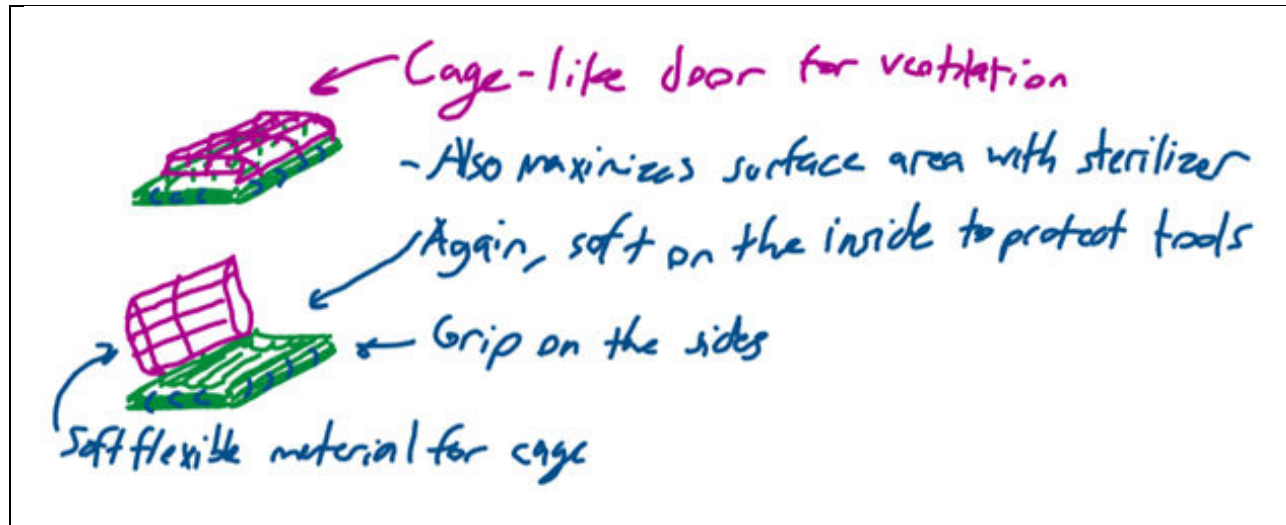 Cage-like door for ventilation
- Also maximizes surface area with sterilizer
Again, soft on the inside to protect tools
Grip on the sides
Soft flexible material for cage